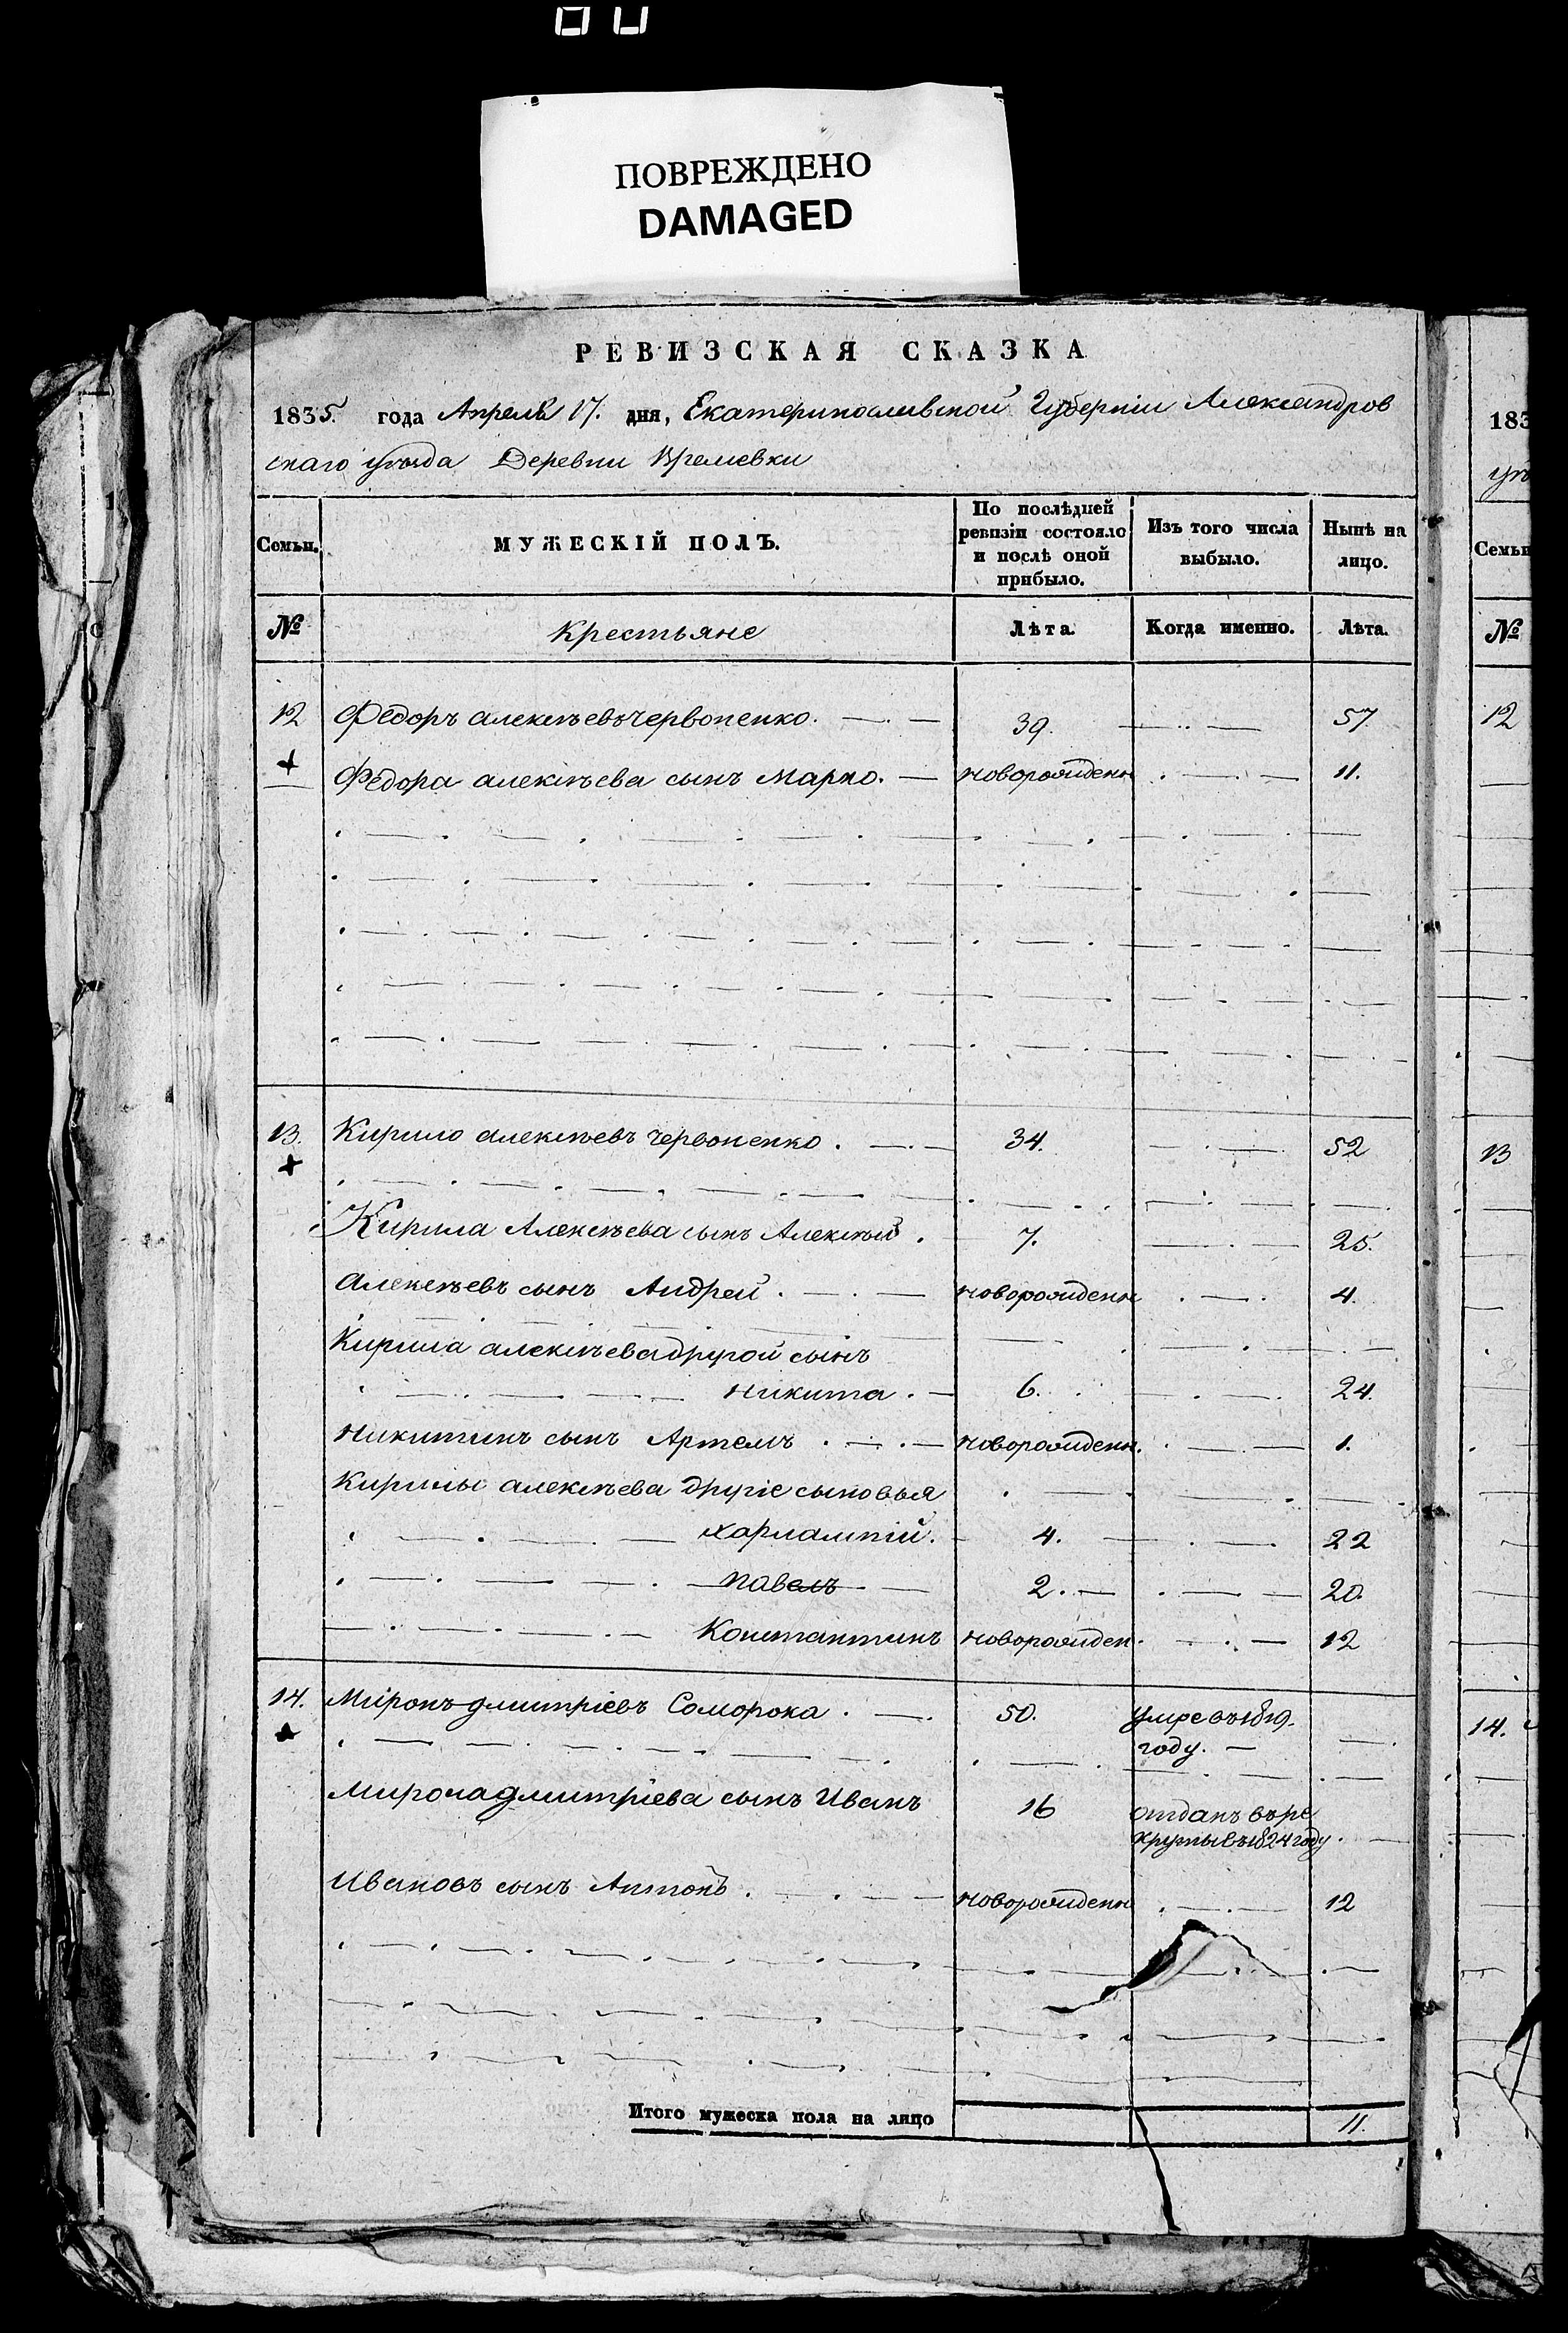 ПОВРЕЖДЕНО
DAMAGED
РЕВИЗСКАЯ СКАЗКА
1835. года Апреля 17. дня, Екатеринославской Губерніи Александров
скаго уѣзда Деревни Времевки
Семьи. МУЖЕСКІЙ ПОЛЪ. По послѣдней ревизіи состояло и послѣ оной прибыло. Изъ того числа выбыло. Нынѣ на лицо.
№ Крестьяне Лѣта. Когда именно. Лѣта.
12 Федоръ алексѣевъ Червоненко. 39. 57
Федора алексѣева сынъ Марко. новорожденн 11.
13. Кирило алексѣевъ Червоненко. 34. 52
Кирила Алексѣева сынъ Алексѣй. 7. 25.
Алексѣевъ сынъ Андрей. новорожденн 4.
Кирила алексѣева другой сынъ
никита. 6. 24.
Никитинъ сынъ Артемъ. новорожденн. 1.
Кирилы алексѣева другіе сыновья
харлампій. 4. 22
павелъ 2. 20.
Константинъ новорожден. 12
14. Миронъ дмитріевъ Соморока. 50. Умре въ 1819.
году.
Мирона дмитріева сынъ Иванъ 16 отданъ въ ре
круты въ 1824 году.
Ивановъ сынъ Антонъ. новорожденн 12
Итого мужеска пола на лицо 11.
183
уѣ
Семьи
№
12
13
14.